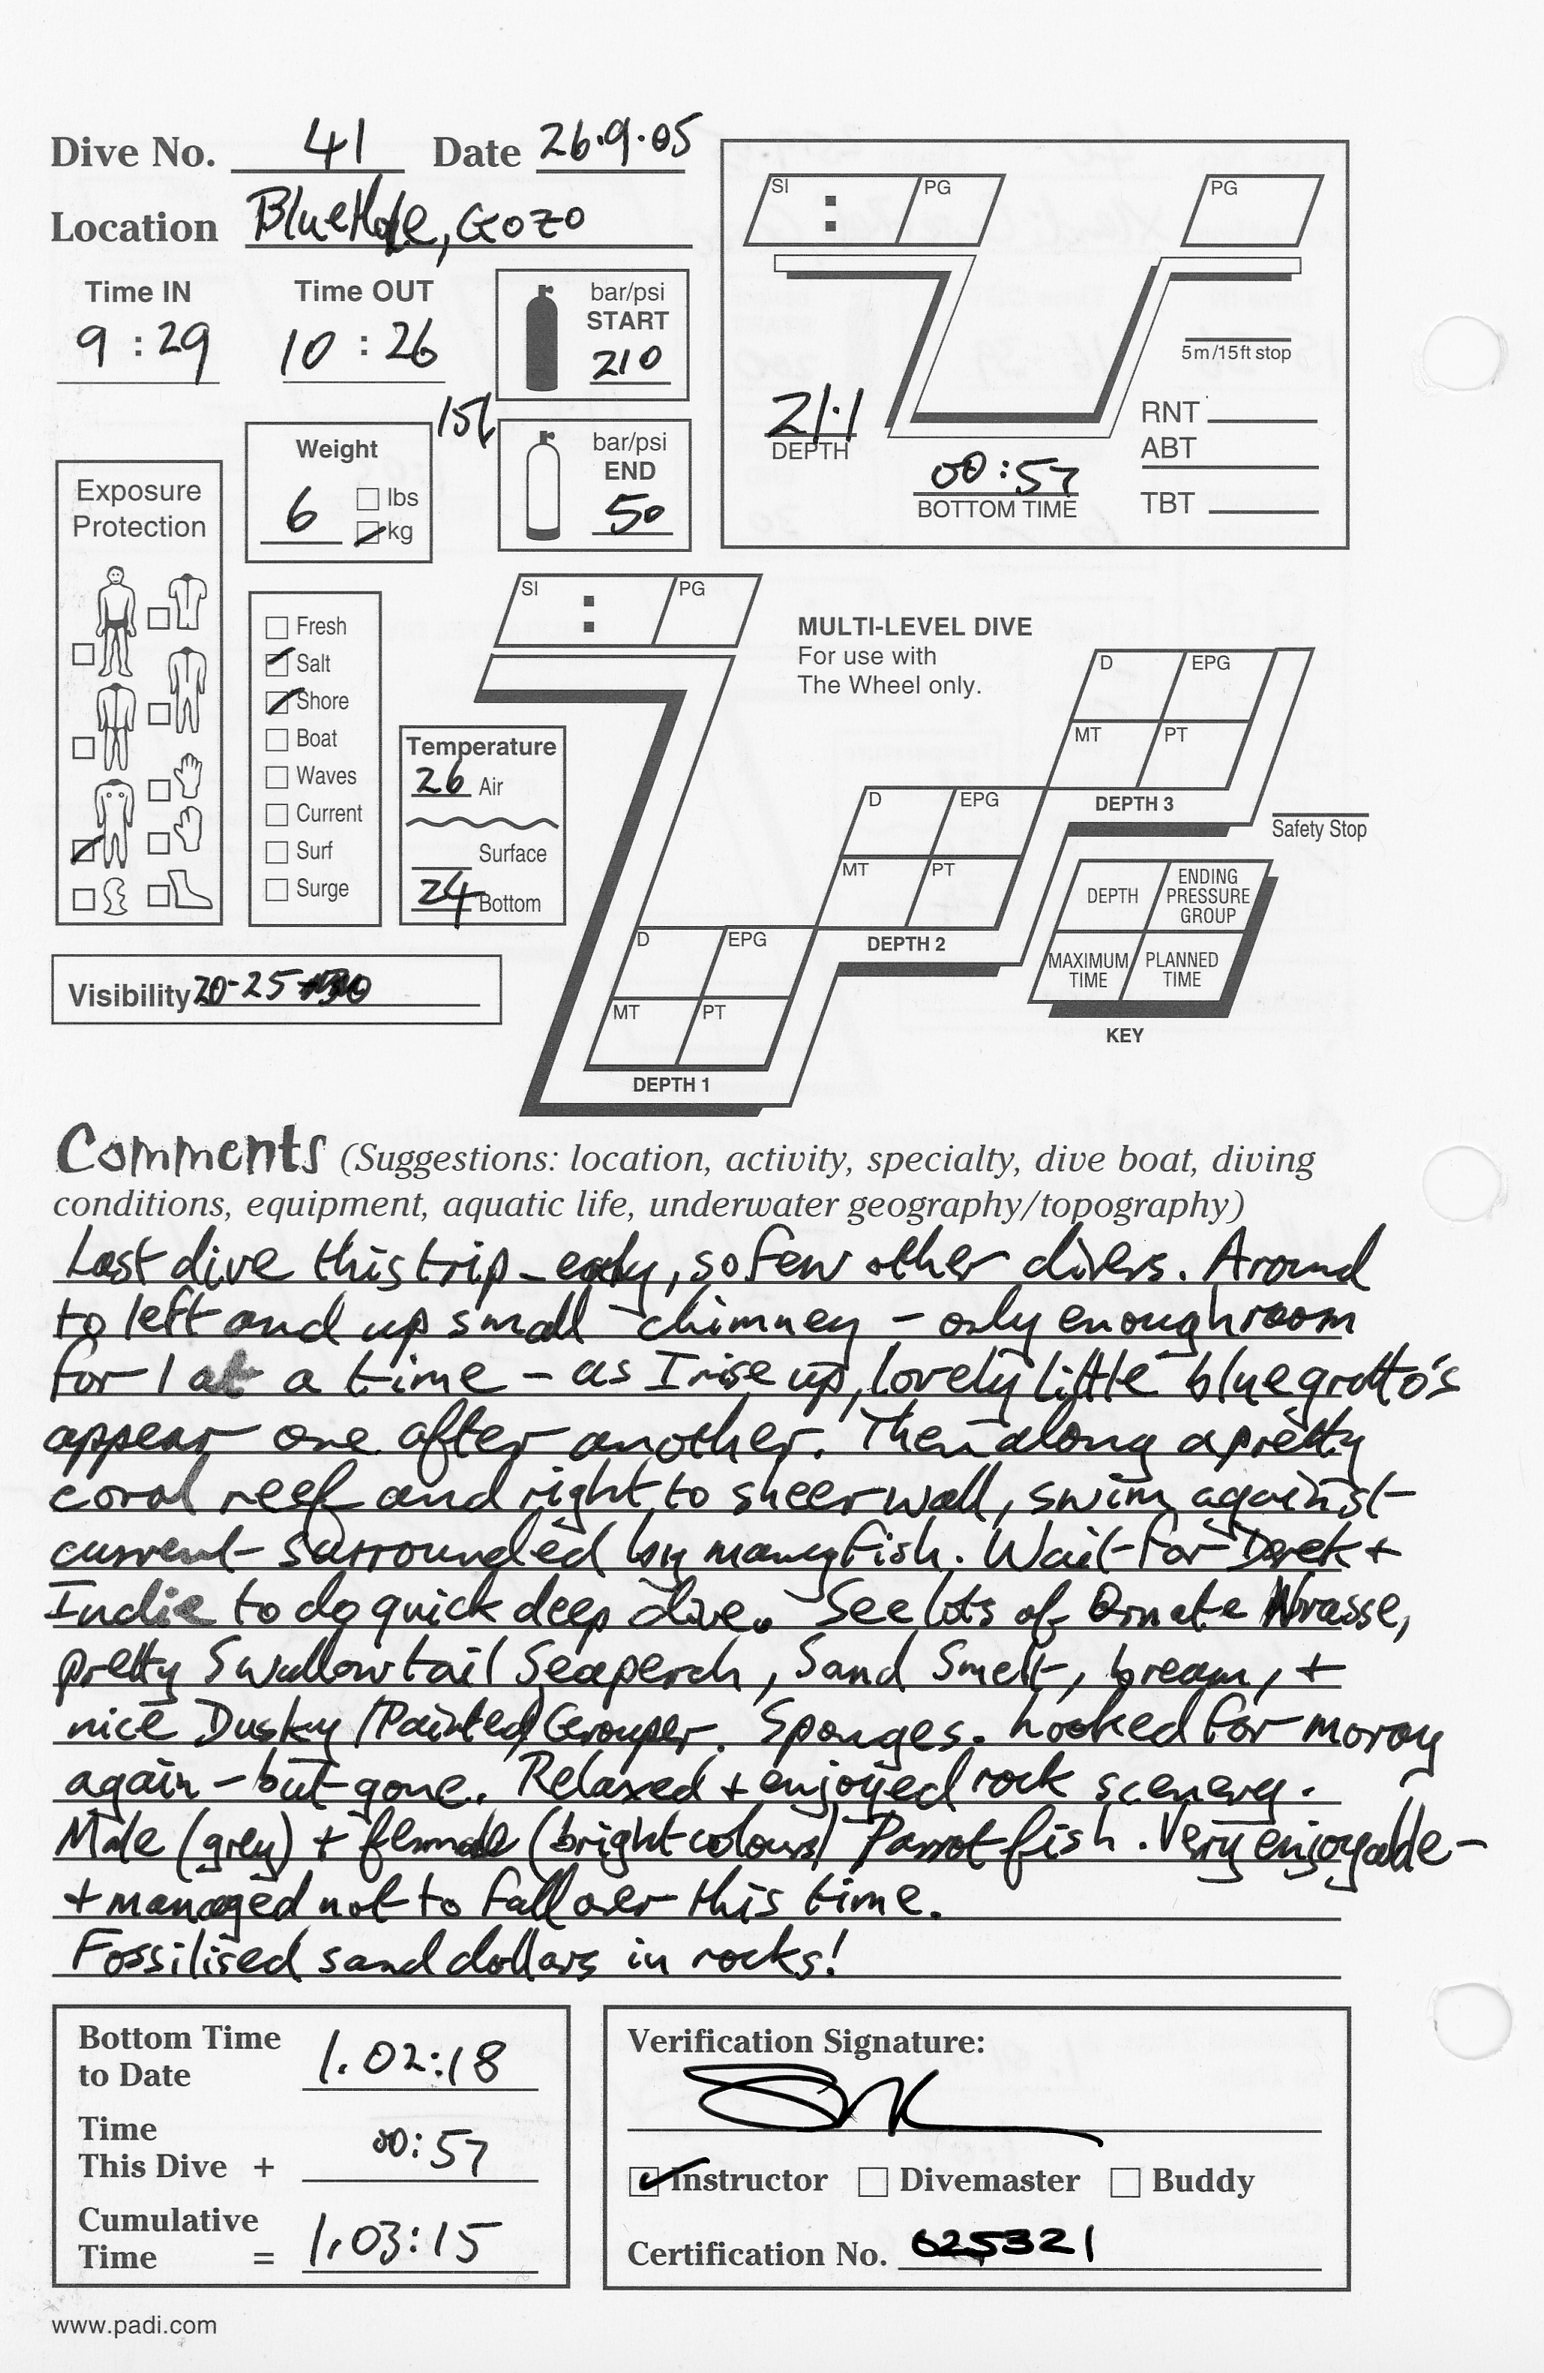 Dive No. 41 Date 26.9.05
Location Blue Hole, Gozo
Time IN Time OUT
9:29 10:26
bar/psi
START
210
15l
bar/psi
END
50
Weight
6
lbs
kg
Exposure
Protection
Fresh
Salt
Shore
Boat
Waves
Current
Surf
Surge
Temperature
26 Air
Surface
24 Bottom
Visibility 20-25
SI : PG
PG
5m/15ft stop
21.1
DEPTH
00:57
BOTTOM TIME
RNT
ABT
TBT
SI : PG
MULTI-LEVEL DIVE
For use with
The Wheel only.
D EPG
MT PT
DEPTH 3
Safety Stop
D EPG
MT PT
DEPTH 2
D EPG
MT PT
DEPTH 1
DEPTH
ENDING
PRESSURE
GROUP
MAXIMUM
TIME
PLANNED
TIME
KEY
Comments (Suggestions: location, activity, specialty, dive boat, diving
conditions, equipment, aquatic life, underwater geography/topography)
Last dive this trip - early, so few other divers. Around
to left and up small chimney - only enough room
for 1 at a time - as I rise up, lovely little blue grotto's
appear one after another. Then along a pretty
coral reef and right to sheer wall, swim against
current surrounded by many fish. Wait for Derek +
Indie to do quick deep dive. See lots of Ornate Wrasse,
pretty Swallowtail Seaperch, Sand Smelt, bream, +
nice Dusky/Painted Grouper. Sponges. Looked for moray
again - but gone. Relaxed + enjoyed rock scenery.
Male (grey) + female (bright colours) Parrot fish. Very enjoyable -
+ managed not to fall over this time.
Fossilised sand dollars in rocks!
Bottom Time
to Date 1.02:18
Time
This Dive + 00:57
Cumulative
Time = 1.03:15
Verification Signature:
Instructor Divemaster Buddy
Certification No. 625321
www.padi.com